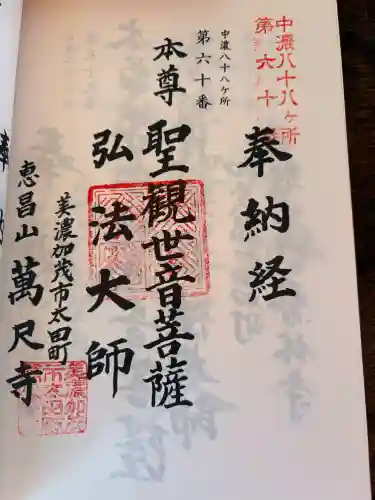 中濃八十八ヶ所
第六十
奉納経
中濃八十八ヶ所
第六十番
本尊
聖観世音菩薩
弘法大師
美濃加茂市太田町
恵昌山
萬尺寺